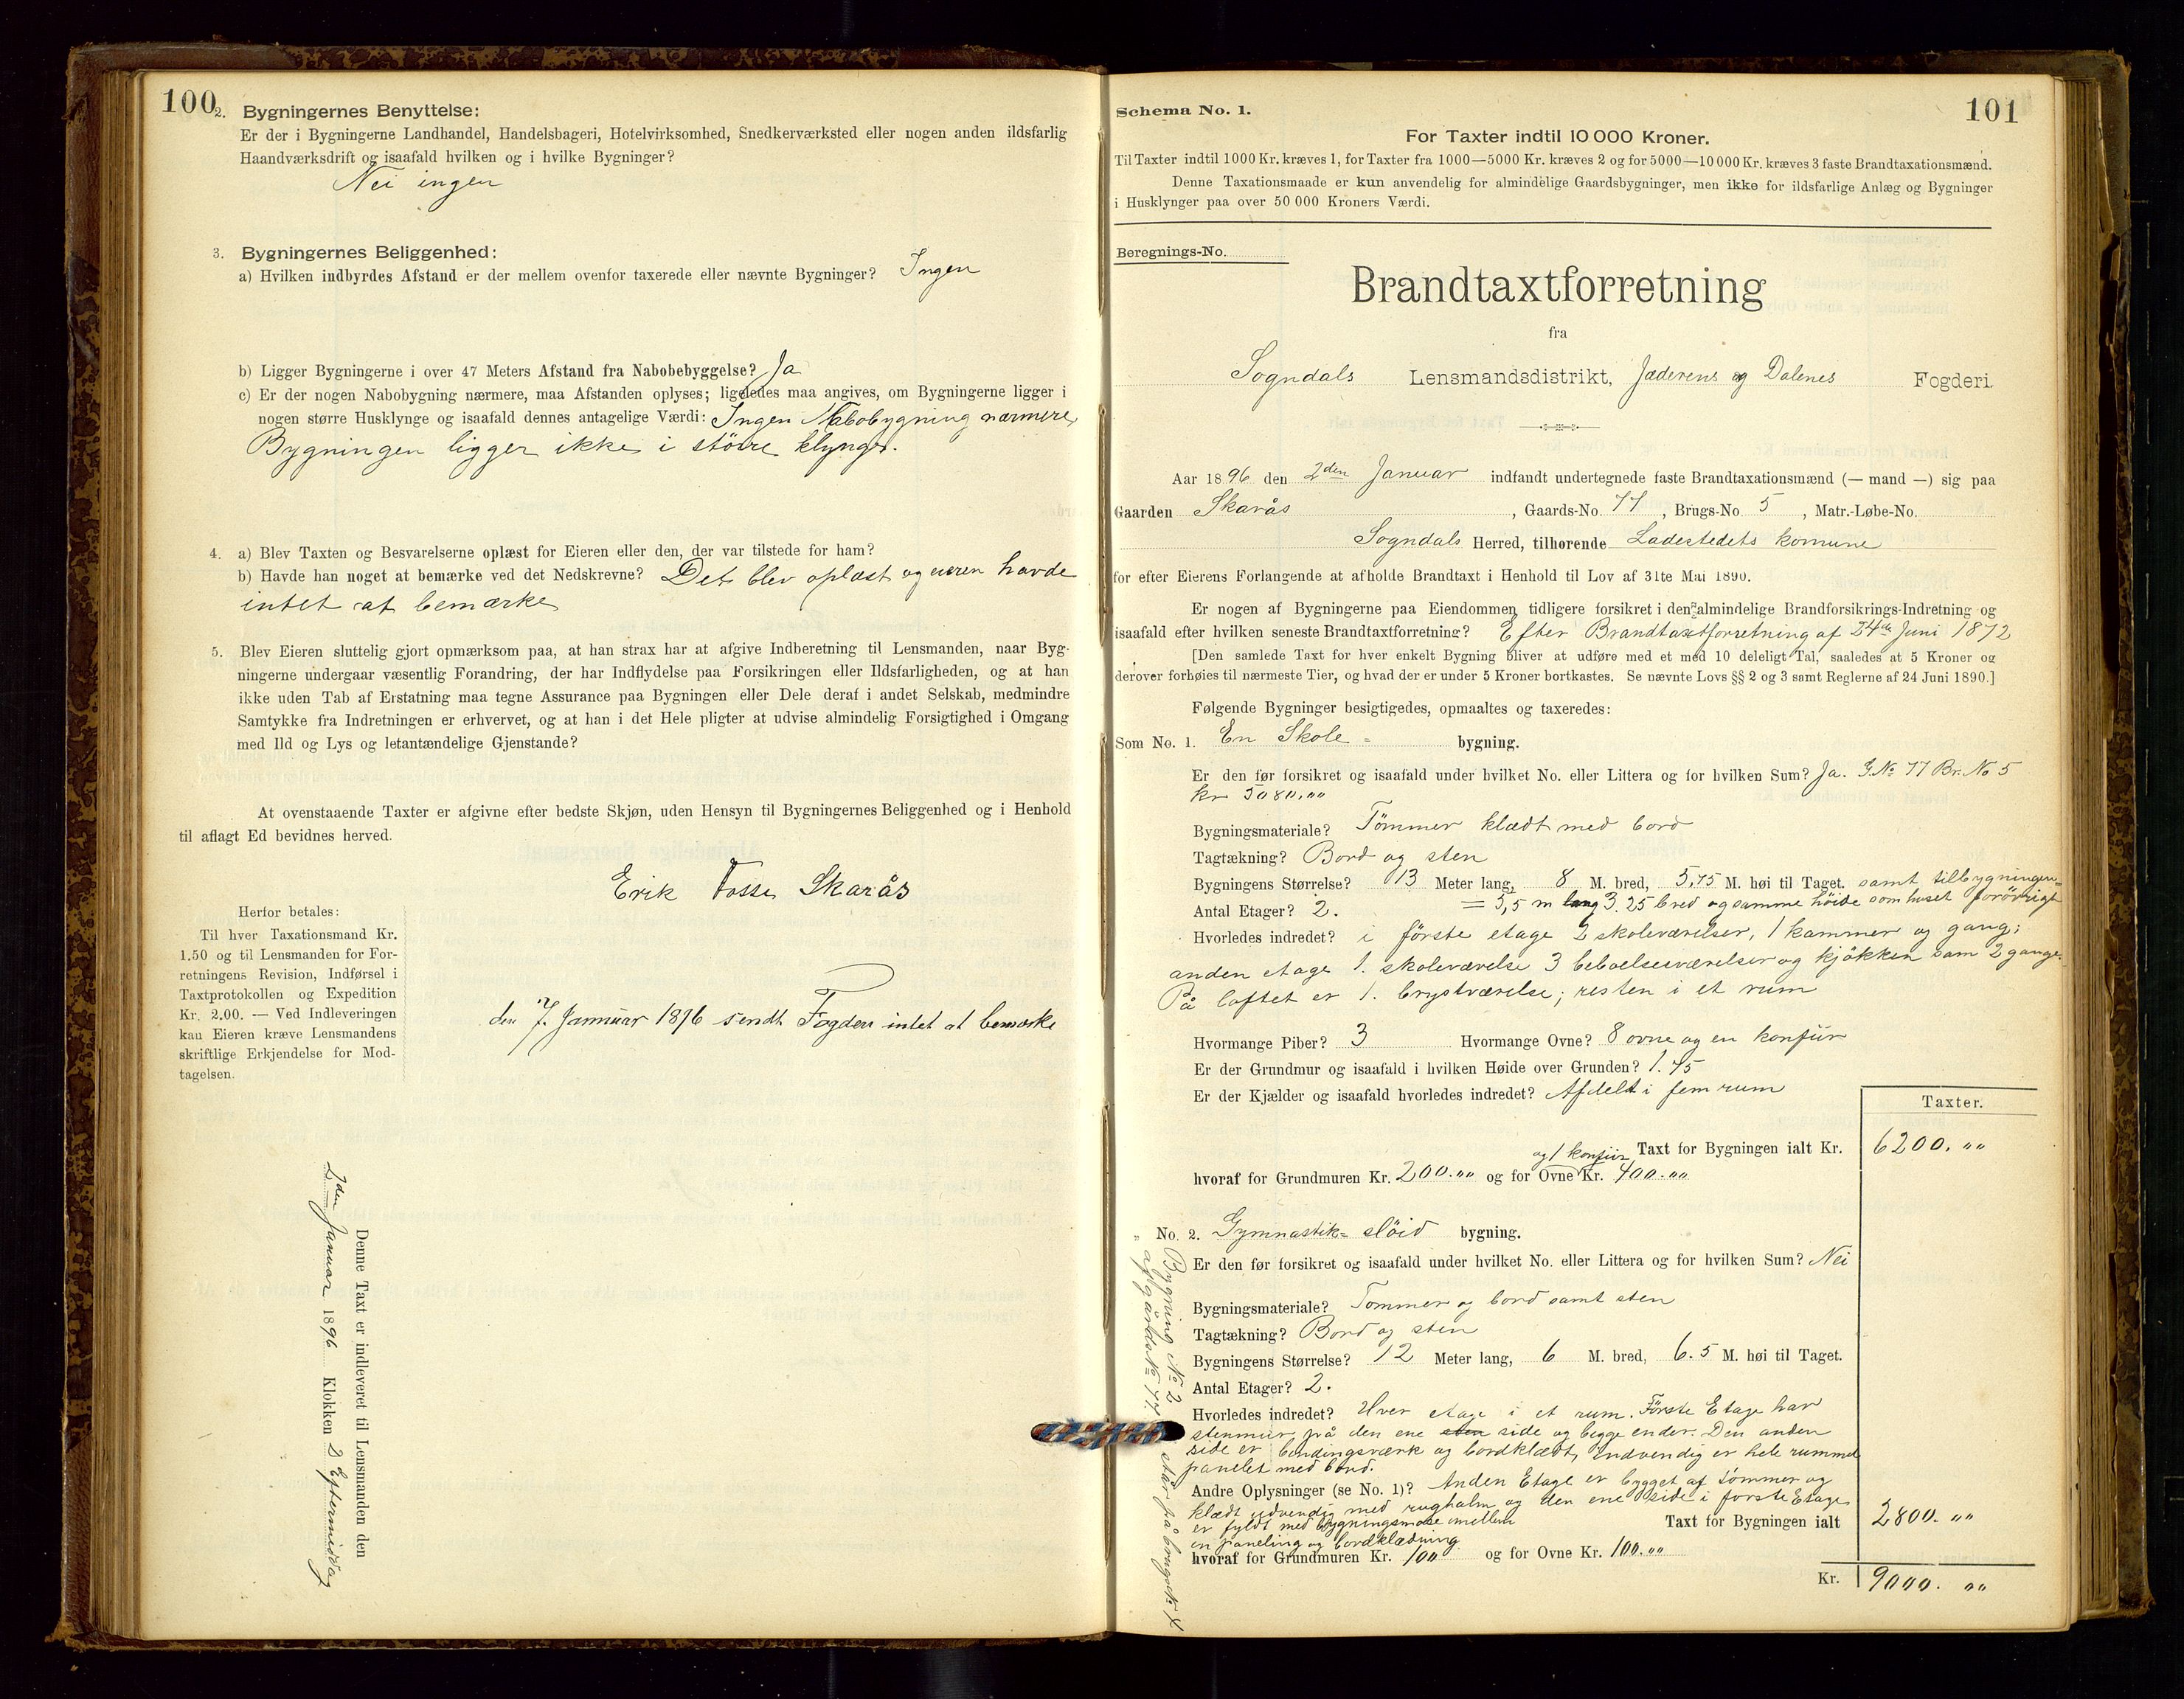 100
2. Bygningernes Benyttelse:
Er der i Bygningerne Landhandel, Handelsbageri, Hotelvirksomhed, Snedkerværksted eller nogen anden ildsfarlig
Haandværksdrift og isaafald hvilken og i hvilke Bygninger?
Nei ingen
3. Bygningernes Beliggenhed:
a) Hvilken indbyrdes Afstand er der mellem ovenfor taxerede eller nævnte Bygninger? Ingen
b) Ligger Bygningerne i over 47 Meters Afstand fra Nabobebyggelse? Ja
c) Er der nogen Nabobygning nærmere, maa Afstanden oplyses; ligeledes maa angives, om Bygningerne ligger i
nogen større Husklynge og isaafald dennes antagelige Værdi: Ingen Nabobygning nærmere,
Bygningen ligger ikke i större klynger.
4. a) Blev Taxten og Besvarelserne oplæst for Eieren eller den, der var tilstede for ham?
b) Havde han noget at bemærke ved det Nedskrevne? Det blev oplæst og eieren havde
intet at bemærke
5. Blev Eieren sluttelig gjort opmærksom paa, at han strax har at afgive Indberetning til Lensmanden, naar Byg-
ningerne undergaar væsentlig Forandring, der har Indflydelse paa Forsikringen eller Ildsfarligheden, og at han
ikke uden Tab af Erstatning maa tegne Assurance paa Bygningen eller Dele deraf i andet Selskab, medmindre
Samtykke fra Indretningen er erhvervet, og at han i det Hele pligter at udvise almindelig Forsigtighed i Omgang
med Ild og Lys og letantændelige Gjenstande?
At ovenstaaende Taxter er afgivne efter bedste Skjøn, uden Hensyn til Bygningernes Beliggenhed og i Henhold
til aflagt Ed bevidnes herved.
Erik Fosse Skarås
Herfor betales:
Til hver Taxationsmand Kr.
1.50 og til Lensmanden for For-
retningens Revision, Indførsel i
Taxtprotokollen og Expedition
Kr. 2.00. — Ved Indleveringen
kan Eieren kræve Lensmandens
skriftlige Erkjendelse for Mod-
tagelsen.
den 7. Januar 1896 sendt Fogden intet at bemærke
Denne Taxt er indleveret til Lensmanden den
2den Januar 1896 Klokken 2 Eftermiddag
101
Schema No. 1.
For Taxter indtil 10 000 Kroner.
Til Taxter indtil 1000 Kr. kræves 1, for Taxter fra 1000—5000 Kr. kræves 2 og for 5000—10 000 Kr. kræves 3 faste Brandtaxationsmænd.
Denne Taxationsmaade er kun anvendelig for almindelige Gaardsbygninger, men ikke for ildsfarlige Anlæg og Bygninger
i Husklynger paa over 50 000 Kroners Værdi.
Beregnings-No.
Brandtaxtforretning
fra
Sogndals Lensmandsdistrikt, Jæderens og Dalenes Fogderi.
Aar 1896 den 2den Januar indfandt undertegnede faste Brandtaxationsmænd (— mand —) sig paa
Gaarden Skarås , Gaards-No. 77 , Brugs-No. 5 , Matr.-Løbe-No.
Sogndals Herred, tilhørende Ladestedets komune
for efter Eierens Forlangende at afholde Brandtaxt i Henhold til Lov af 31te Mai 1890.
Er nogen af Bygningerne paa Eiendommen tidligere forsikret i den almindelige Brandforsikrings-Indretning og
isaafald efter hvilken seneste Brandtaxtforretning? Efter Brandtaxtforretning af 24de Juni 1872
[Den samlede Taxt for hver enkelt Bygning bliver at udføre med et med 10 deleligt Tal, saaledes at 5 Kroner og
derover forhøies til nærmeste Tier, og hvad der er under 5 Kroner bortkastes. Se nævnte Lovs §§ 2 og 3 samt Reglerne af 24 Juni 1890.]
Følgende Bygninger besigtigedes, opmaaltes og taxeredes:
Som No. 1. En Skole= bygning.
Er den før forsikret og isaafald under hvilket No. eller Littera og for hvilken Sum? Ja. G.No 77 Br. No 5
kr 5080.""
Bygningsmateriale? Tömmer klædt med bord
Tagtækning? Bord og sten
Bygningens Størrelse? 13 Meter lang, 8 M. bred, 5,75 M. høi til Taget. samt tilbygningen=
Antal Etager? 2. = 5,5 m lang 3.25 bred og samme höide som huset forövrigt
Hvorledes indredet? i förste etage 2 skoleværelser, 1 kammer og gang;
anden etage 1. skoleværelse 3 beboelsesværelser og kjökken sam 2 gange.
På loftet er 1. brystværelse; resten i et rum
Hvormange Piber? 3 Hvormange Ovne? 8 ovne og en konfür
Er der Grundmur og isaafald i hvilken Høide over Grunden? 1.75
Er der Kjælder og isaafald hvorledes indredet? Afdelt i fem rum
Taxter.
Taxt for Bygningen ialt Kr. 6200. ""
og 1 konfür
hvoraf for Grundmuren Kr. 200."" og for Ovne Kr. 400.""
" No. 2. Gymnastik= slöid bygning.
Er den før forsikret og isaafald under hvilket No. eller Littera og for hvilken Sum? Nei
Bygningsmateriale? Tömmer og bord samt sten
Tagtækning? Bord og sten
Bygningens Størrelse? 12 Meter lang, 6 M. bred, 6.5 M. høi til Taget.
Antal Etager? 2.
Hvorledes indredet? Hver etage i et rum. Förste Etage har
stenmur på den ene side og begge ender. Den anden
side er bindingsværk og bordklædt, indvendig er hele rummet
panelet med bord.
Andre Oplysninger (se No. 1)? Anden Etage er bygget af tömmer og
klædt udvendig med og den ene side i förste Etage
er fyldt med bygningsmose imellem
en paneling og bordklædning.
Taxt for Bygningen ialt 2800. ""
hvoraf for Grundmuren Kr. 100 og for Ovne Kr. 100.""
Kr. 9000. ""
Bygning No 2 står på brugsno
af gårdsno 77.